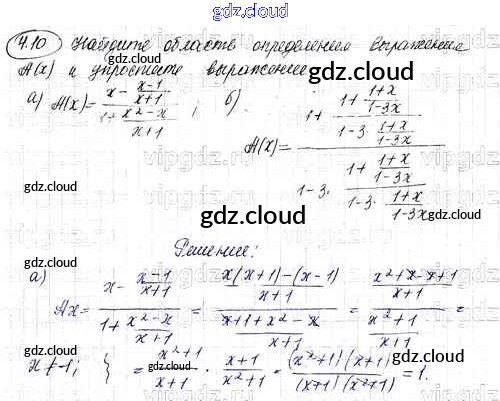 gdz.cloud
4.10 Найдите область определения выражения
A(x) и упростите выражение
а) A(x) = (x - (x-1)/(x+1)) / (1 + (x²-x)/(x+1)) ; б) A(x) = (1 + (1 + (1+x)/(1-3x)) / (1 - 3·(1+x)/(1-3x))) / (1 - 3·(1 + (1+x)/(1-3x)) / (1 - 3·(1+x)/(1-3x)))
gdz.cloud
gdz.cloud
gdz.cloud
gdz.cloud
Решение:
gdz.cloud
gdz.cloud
а) Ax = (x - (x-1)/(x+1)) / (1 + (x²-x)/(x+1)) = ((x(x+1)-(x-1))/(x+1)) / ((x+1+x²-x)/(x+1)) = ((x²+x-x+1)/(x+1)) / ((x²+1)/(x+1)) =
gdz.cloud
gdz.cloud
x ≠ -1; } = (x²+1)/(x+1) · (x+1)/(x²+1) = ((x²+1)(x+1))/((x+1)(x²+1)) = 1.
gdz.cloud
gdz.cloud